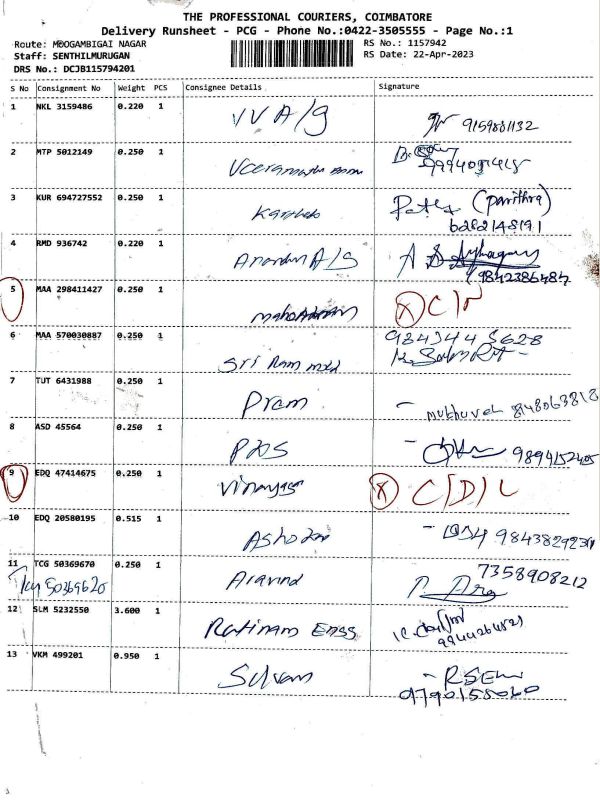 THE PROFESSIONAL COURIERS, COIMBATORE
Delivery Runsheet - PCG - Phone No.:0422-3505555 - Page No.:1
Route: MOOGAMBIGAI NAGAR
RS No.: 1157942
Staff: SENTHILMURUGAN
RS Date: 22-Apr-2023
DRS No.: DCJB115794201
S No Consignment No Weight PCS Consignee Details Signature
1 NKL 3159486 0.220 1 VV A/g 9159881132
2 MTP 5012149 0.250 1
3 KUR 694727552 0.250 1 (pavithra)
6282148191
4 RMD 936742 0.220 1 A/g
9842386487
5 MAA 298411427 0.250 1 X C/N
6 MAA 570030887 0.250 1 Sri Ram 984344 8628
7 TUT 6431988 0.250 1 Prem - 8148063818
8 ASD 45564 0.250 1 - 9894152405
9 EDQ 47414675 0.250 1 Vinayaga X C/D/L
10 EDQ 20580195 0.515 1 Ashok -
11 TCG 50369670 0.250 1 Aravind 7358908212
Tcg 50369620
12 SLM 5232550 3.600 1 Ratinam Enss
13 VKM 499201 0.950 1 Selvam
9790155060